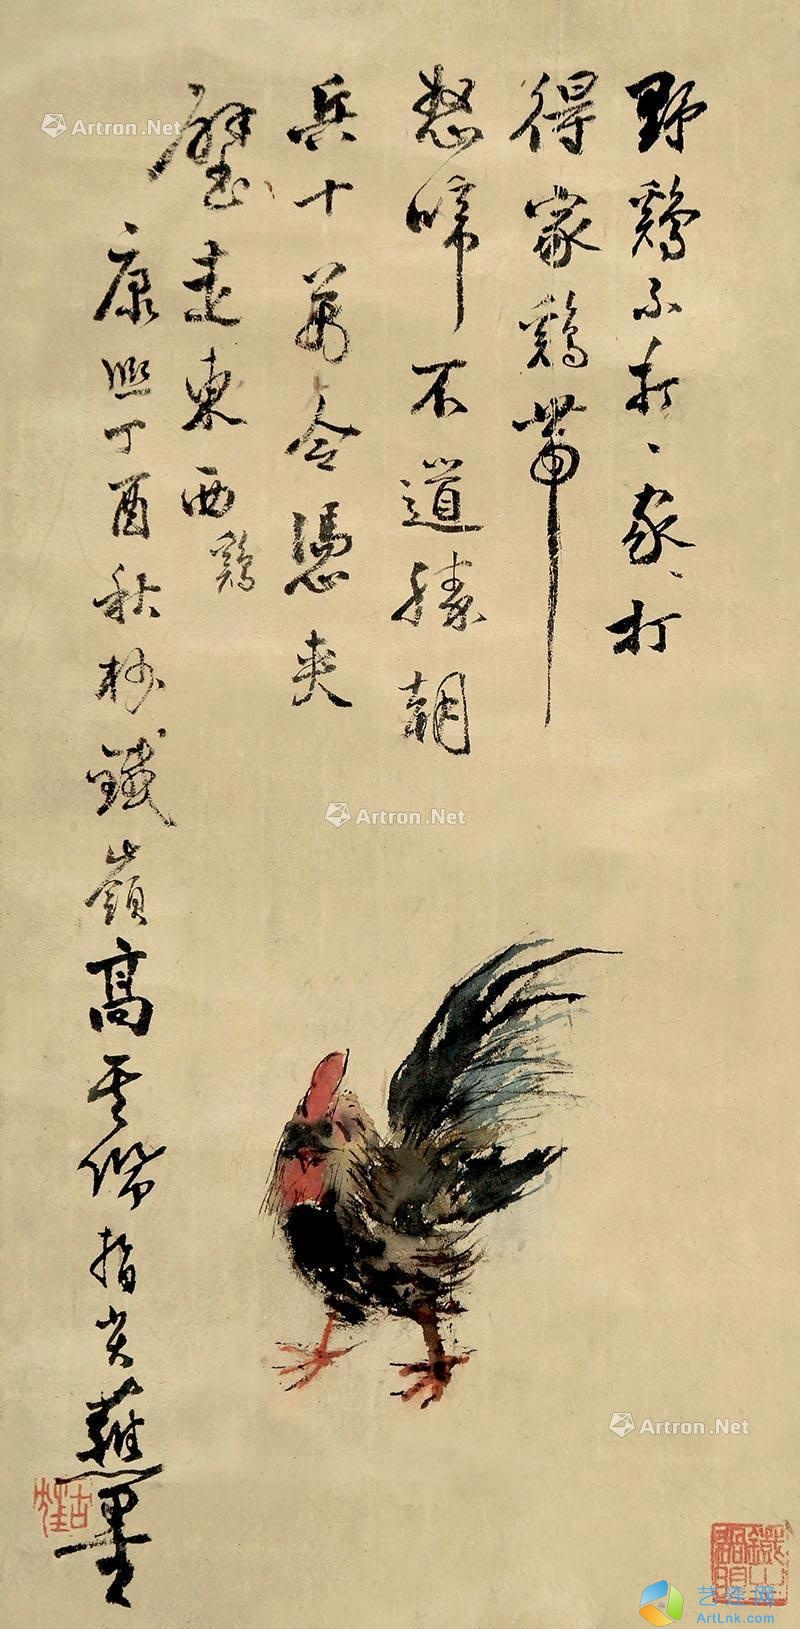 野鷄不打〻家〻打
得家鷄帶
愁啼不道勝朝
兵十萬全憑夾
壁走東西鷄
康熙丁酉秋杪鐵嶺高其佩指尖蘸墨
Artron.Net
Artron.Net
Artron.Net
艺连网
ArtLnk.com